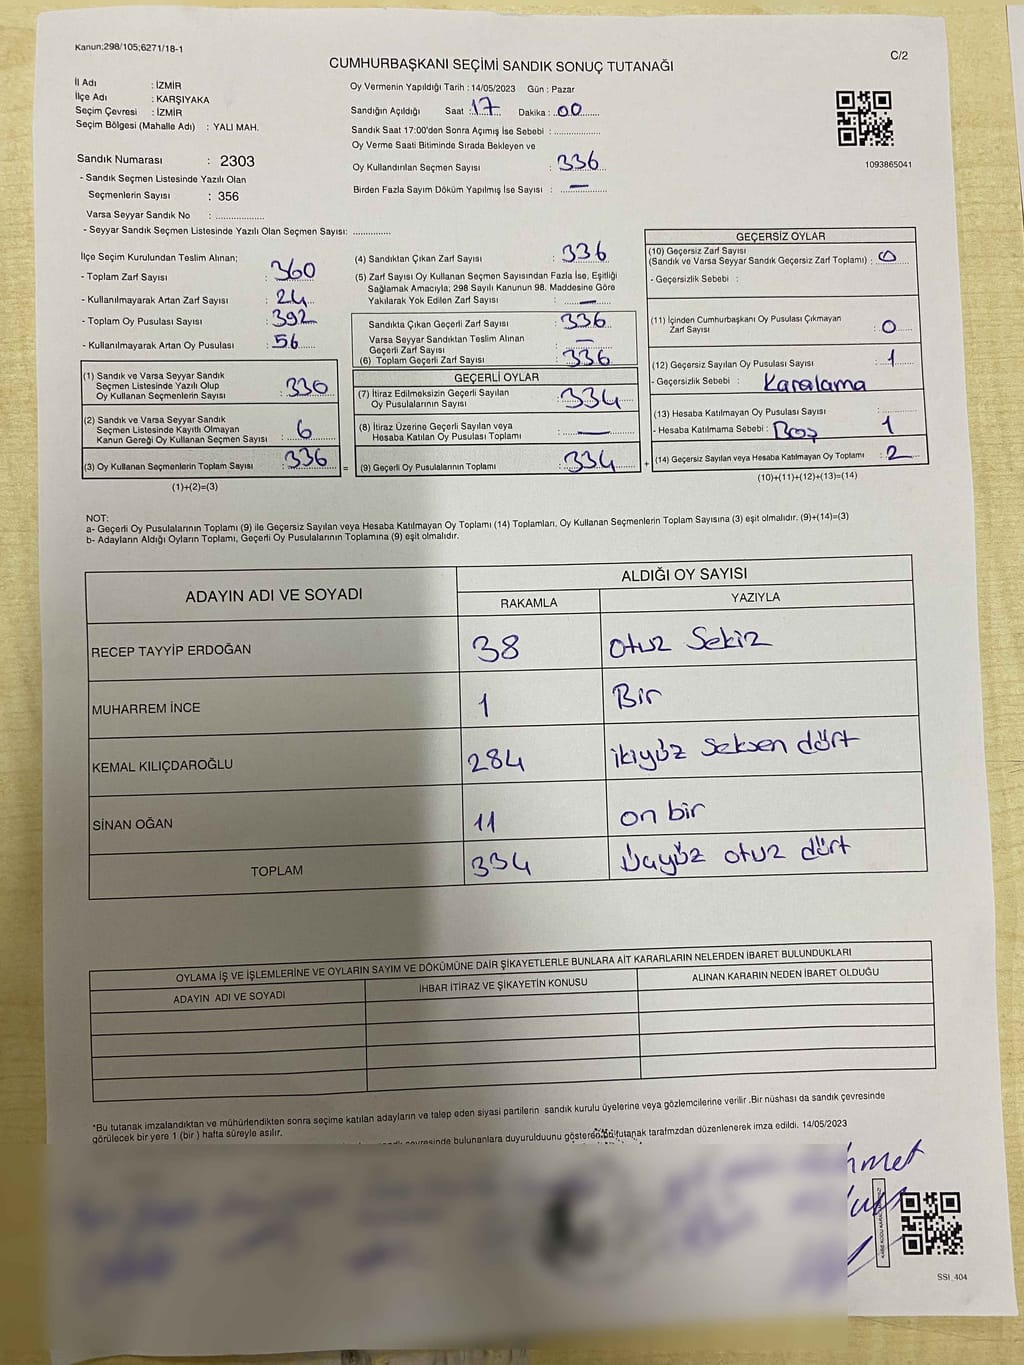 Kanun;298/105;6271/18-1
C/2
CUMHURBAŞKANI SEÇİMİ SANDIK SONUÇ TUTANAĞI
İl Adı : İZMİR
İlçe Adı : KARŞIYAKA
Seçim Çevresi : İZMİR
Seçim Bölgesi (Mahalle Adı) : YALI MAH.
Sandık Numarası : 2303
- Sandık Seçmen Listesinde Yazılı Olan
Seçmenlerin Sayısı : 356
Varsa Seyyar Sandık No : ..................
- Seyyar Sandık Seçmen Listesinde Yazılı Olan Seçmen Sayısı: ..............
Oy Vermenin Yapıldığı Tarih : 14/05/2023 Gün : Pazar
Sandığın Açıldığı Saat : 17 Dakika : 00
Sandık Saat 17:00'den Sonra Açımış İse Sebebi : ..................
Oy Verme Saati Bitiminde Sırada Bekleyen ve
Oy Kullandırılan Seçmen Sayısı : 336
Birden Fazla Sayım Döküm Yapılmış İse Sayısı : —
1093865041
İlçe Seçim Kurulundan Teslim Alınan;
- Toplam Zarf Sayısı : 360
- Kullanılmayarak Artan Zarf Sayısı : 24
- Toplam Oy Pusulası Sayısı : 392
- Kullanılmayarak Artan Oy Pusulası : 56
(1) Sandık ve Varsa Seyyar Sandık
Seçmen Listesinde Yazılı Olup
Oy Kullanan Seçmenlerin Sayısı : 330
(2) Sandık ve Varsa Seyyar Sandık
Seçmen Listesinde Kayıtlı Olmayan
Kanun Gereği Oy Kullanan Seçmen Sayısı : 6
(3) Oy Kullanan Seçmenlerin Toplam Sayısı : 336 =
(1)+(2)=(3)
(4) Sandıktan Çıkan Zarf Sayısı : 336
(5) Zarf Sayısı Oy Kullanan Seçmen Sayısından Fazla İse, Eşitliği
Sağlamak Amacıyla; 298 Sayılı Kanunun 98. Maddesine Göre
Yakılarak Yok Edilen Zarf Sayısı : —
Sandıkta Çıkan Geçerli Zarf Sayısı : 336
Varsa Seyyar Sandıktan Teslim Alınan
Geçerli Zarf Sayısı : —
(6) Toplam Geçerli Zarf Sayısı : 336
GEÇERLİ OYLAR
(7) İtiraz Edilmeksizin Geçerli Sayılan
Oy Pusulalarının Sayısı : 334
(8) İtiraz Üzerine Geçerli Sayılan veya
Hesaba Katılan Oy Pusulası Toplamı : —
(9) Geçerli Oy Pusulalarının Toplamı : 334 +
GEÇERSİZ OYLAR
(10) Geçersiz Zarf Sayısı
(Sandık ve Varsa Seyyar Sandık Geçersiz Zarf Toplamı) : 0
- Geçersizlik Sebebi :
(11) İçinden Cumhurbaşkanı Oy Pusulası Çıkmayan
Zarf Sayısı : 0
(12) Geçersiz Sayılan Oy Pusulası Sayısı : 1
- Geçersizlik Sebebi : Karalama
(13) Hesaba Katılmayan Oy Pusulası Sayısı :
- Hesaba Katılmama Sebebi : Boş 1
(14) Geçersiz Sayılan veya Hesaba Katılmayan Oy Toplamı : 2
(10)+(11)+(12)+(13)=(14)
NOT:
a- Geçerli Oy Pusulalarının Toplamı (9) ile Geçersiz Sayılan veya Hesaba Katılmayan Oy Toplamı (14) Toplamları, Oy Kullanan Seçmenlerin Toplam Sayısına (3) eşit olmalıdır. (9)+(14)=(3)
b- Adayların Aldığı Oyların Toplamı, Geçerli Oy Pusulalarının Toplamına (9) eşit olmalıdır.
ADAYIN ADI VE SOYADI
ALDIĞI OY SAYISI
RAKAMLA YAZIYLA
RECEP TAYYİP ERDOĞAN 38 Otuz Sekiz
MUHARREM İNCE 1 Bir
KEMAL KILIÇDAROĞLU 284 ikiyüz Seksen dört
SİNAN OĞAN 11 on bir
TOPLAM 334 Üçyüz otuz dört
OYLAMA İŞ VE İŞLEMLERİNE VE OYLARIN SAYIM VE DÖKÜMÜNE DAİR ŞİKAYETLERLE BUNLARA AİT KARARLARIN NELERDEN İBARET BULUNDUKLARI
ADAYIN ADI VE SOYADI İHBAR İTİRAZ VE ŞİKAYETİN KONUSU ALINAN KARARIN NEDEN İBARET OLDUĞU
*Bu tutanak imzalandıktan ve mühürlendikten sonra seçime katılan adayların ve talep eden siyasi partilerin sandık kurulu üyelerine veya gözlemcilerine verilir .Bir nüshası da sandık çevresinde
görülecek bir yere 1 (bir ) hafta süreyle asılır.
bulunanlara duyurulduunu gösteren tutanak tarafmzdan düzenlenerek imza edildi. 14/05/2023
SSI_404